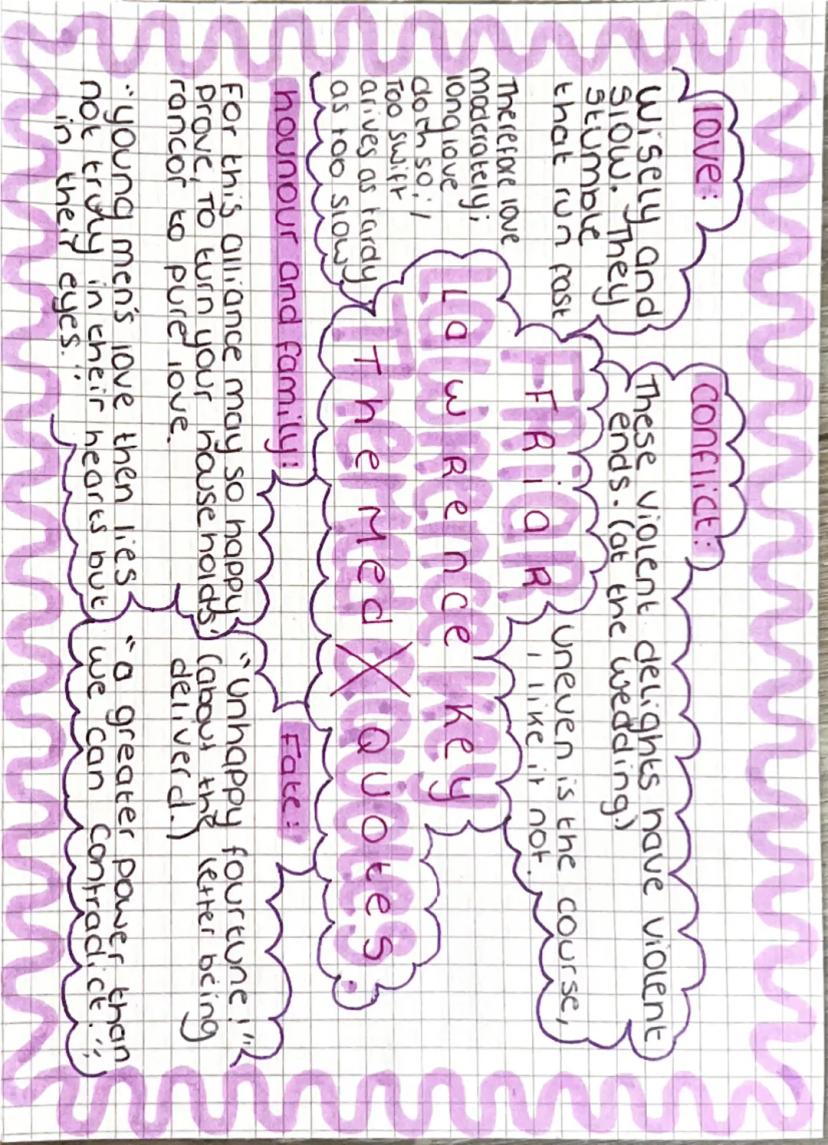 love:
Wisely and
slow. They
stumble
that run fast
Therefore love
moderately;
long love
doth so; /
Too swift
arives as tardy
as too slow
Conflict:
These violent delights have violent
ends. (at the wedding.)
Uneven is the course,
i like it not.
FRiaR
LawRence key
Themed Quotes.
hounour and family:
For this alliance may so happy
prove, To turn your households'
rancor to pure love.
"young men's love then lies
not truly in their hearts but
in their eyes."
Fate:
"unhappy fourtune!"
(about the letter being
deliverd.)
"a greater power than
we can contradict."